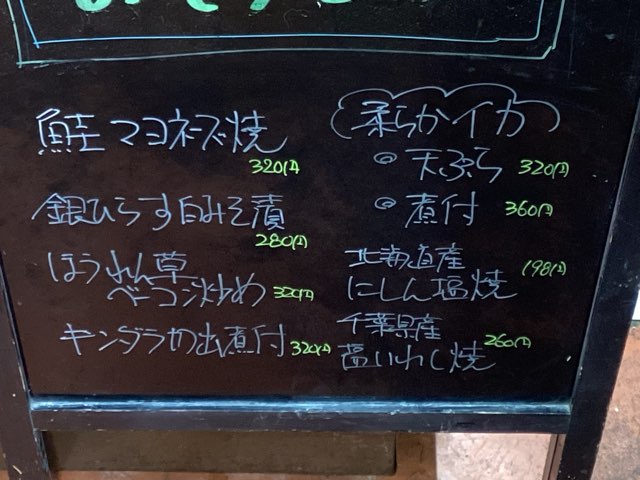 鮭マヨネーズ焼
320円
銀ひらす白みそ漬
280円
ほうれん草
ベーコン炒め 320円
キンダラカマ煮付 320円
柔らかイカ
◎天ぷら 320円
◎煮付 360円
北海道産
にしん塩焼 198円
千葉県産
塩いわし焼 260円